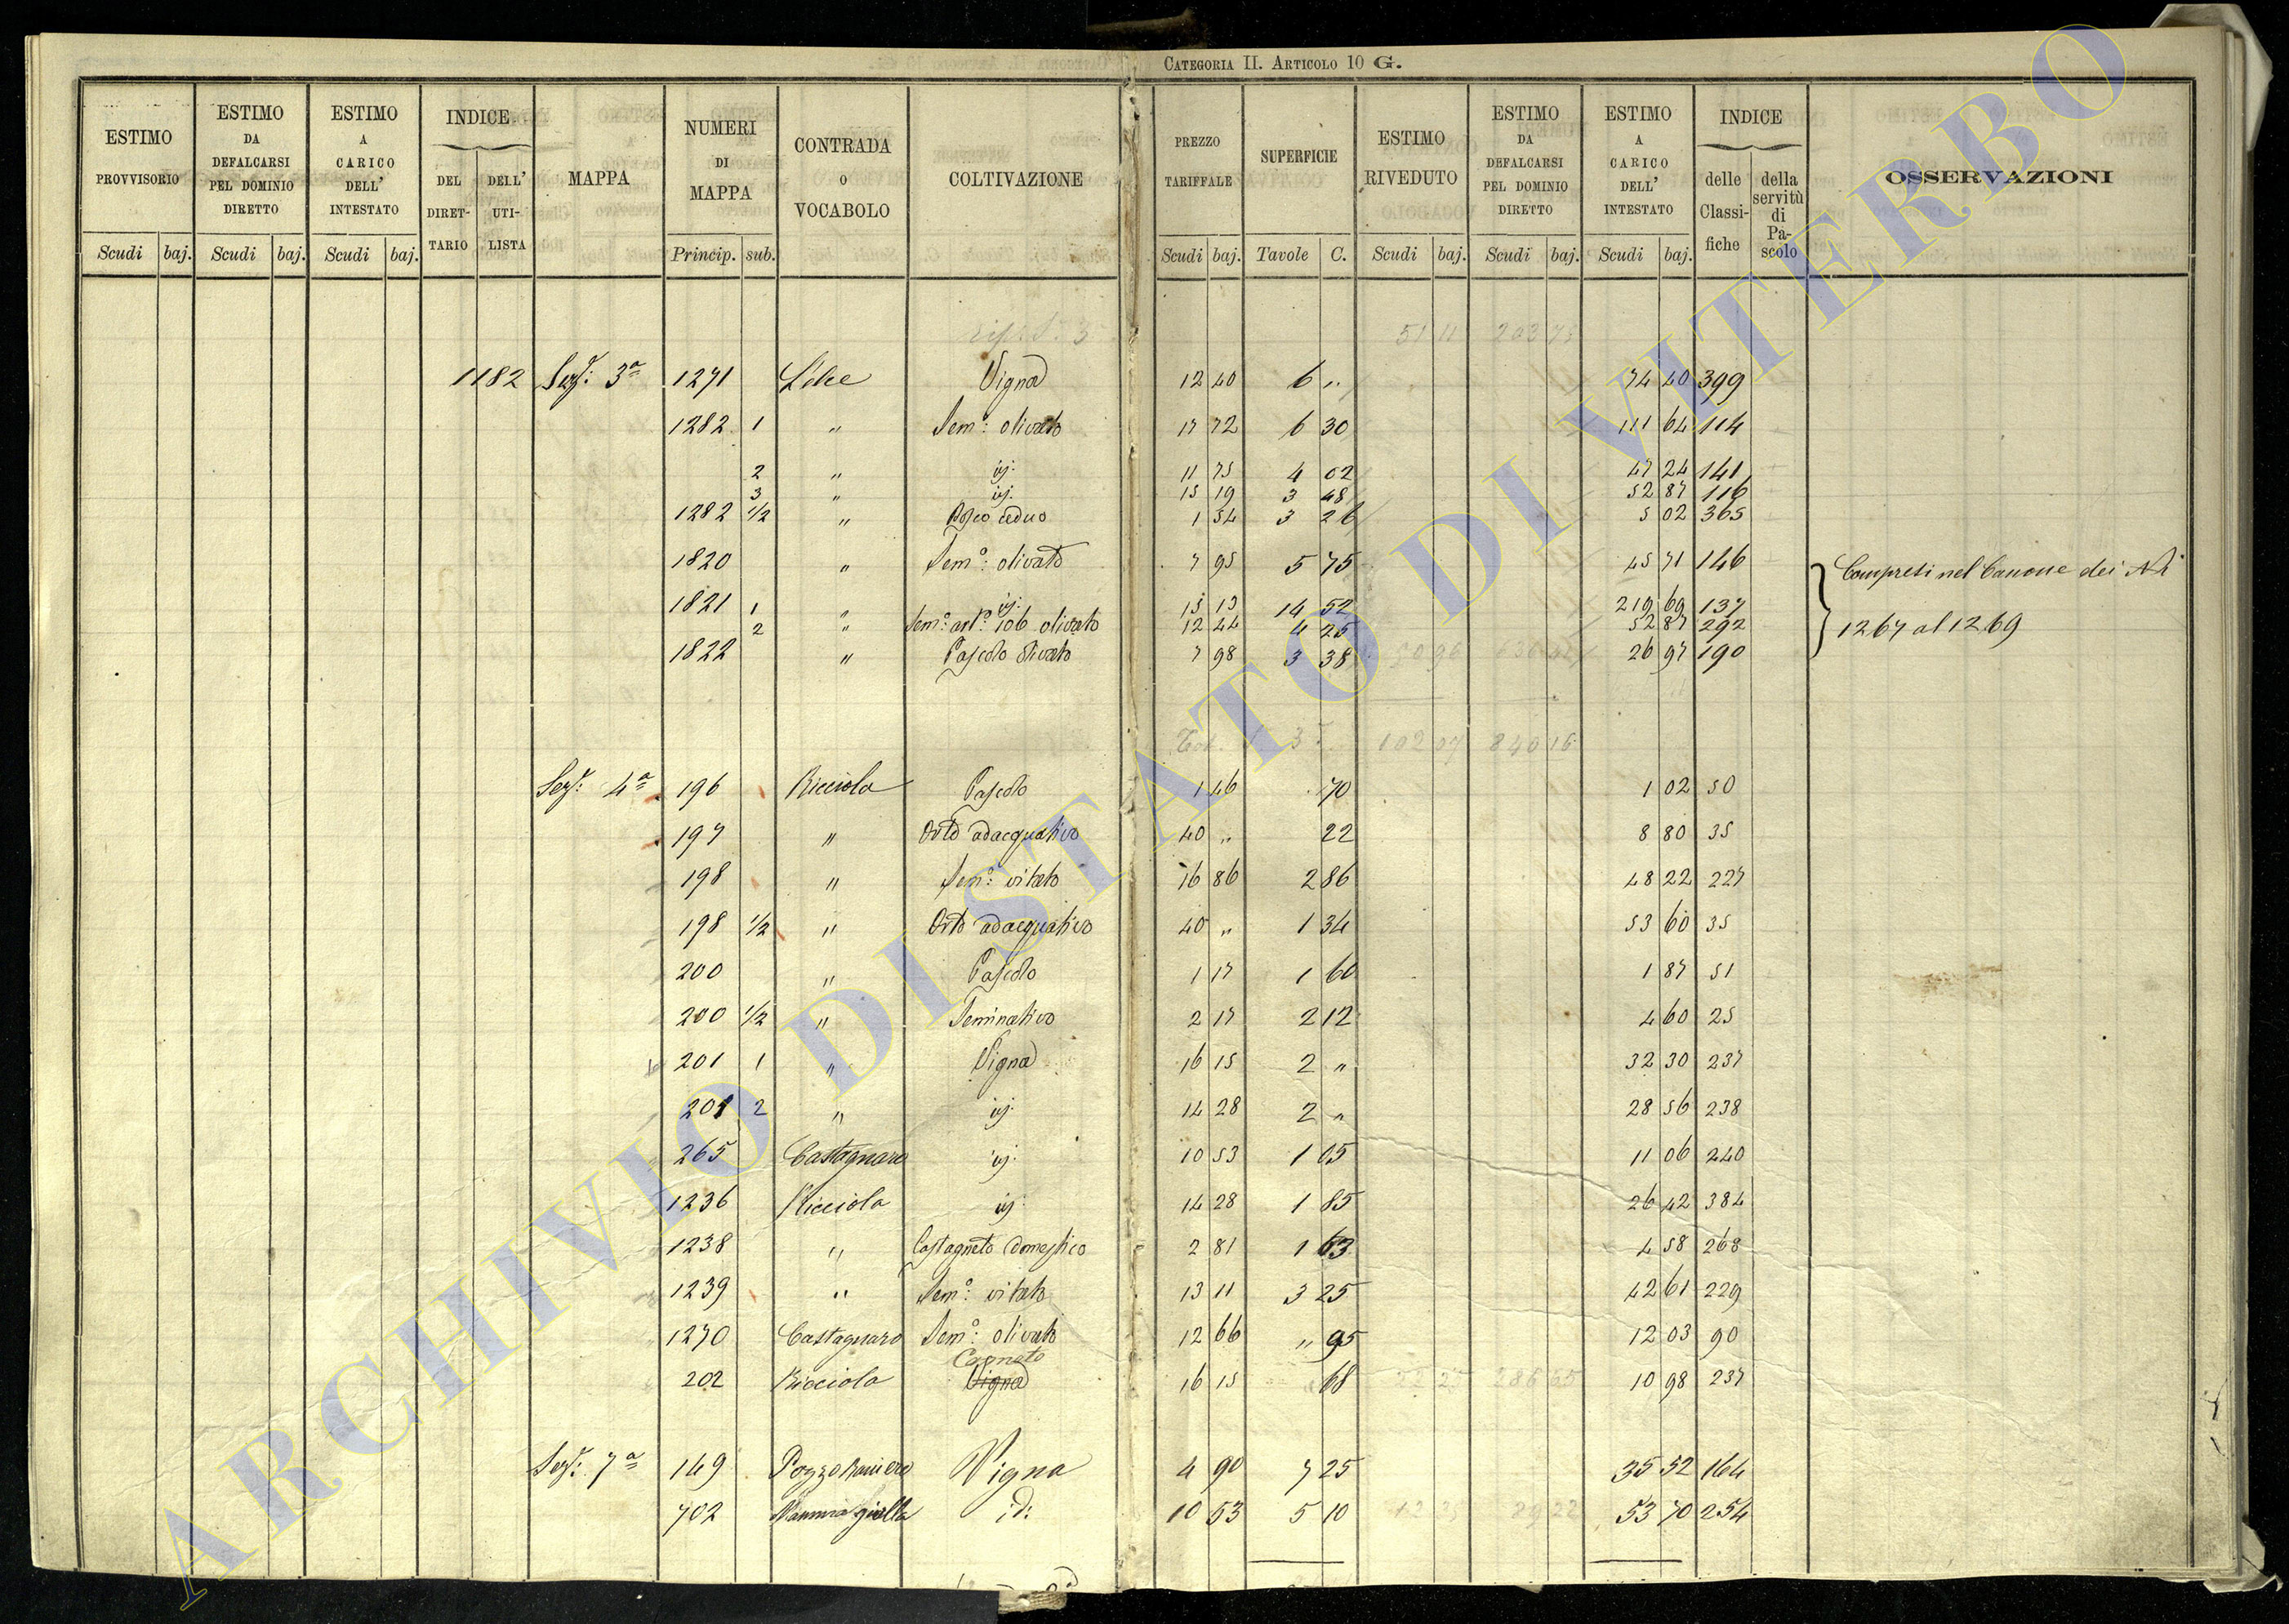 CATEGORIA II. ARTICOLO 10 G.
ESTIMO PROVVISORIO Scudi baj.
ESTIMO DA DEFALCARSI PEL DOMINIO DIRETTO Scudi baj.
ESTIMO A CARICO DELL' INTESTATO Scudi baj.
INDICE DEL DIRETTARIO DELL' UTILISTA
MAPPA
NUMERI DI MAPPA Princip. sub.
CONTRADA O VOCABOLO
COLTIVAZIONE
PREZZO TARIFFALE Scudi baj.
SUPERFICIE Tavole C.
ESTIMO RIVEDUTO Scudi baj.
ESTIMO DA DEFALCARSI PEL DOMINIO DIRETTO Scudi baj.
ESTIMO A CARICO DELL' INTESTATO Scudi baj.
INDICE delle Classifiche della servitù di Pascolo
OSSERVAZIONI
51 11 203 73
1182 Sez: 3a 1271 Vigna 12 40 6 " 74 40 399
1282 1 " Sem: olivato 17 72 6 30 111 64 114
2 " id: 11 75 4 02 47 24 141
3 " id: 15 19 3 48 52 87 116
1282 1/2 " Bosco ceduo 1 54 3 26 5 02 365
1820 " Semo: olivato 7 95 5 75 45 71 146
Compresi nel Canone dei Ni
1821 1 " id: 15 13 14 52 219 69 137
2 " Semo: olivato 12 44 4 25 52 87 292
1267 al 1269
1822 " Pascolo olivato 7 98 3 38 50 96 636 42 26 97 190
Tot. 3 102 07 840 15
Sez: 4a 196 Ricciola Pascolo 1 46 70 1 02 50
197 " Orto adacquativo 40 " 22 8 80 35
198 " Semo: vitato 16 86 2 86 48 22 227
198 1/2 " Orto adacquativo 40 " 1 34 53 60 35
200 " Pascolo 1 17 1 60 1 87 51
200 1/2 " Seminativo 2 17 2 12 4 60 25
201 1 " Vigna 16 15 2 " 32 30 237
201 2 " id: 14 28 2 " 28 56 238
265 Castagnaro id: 10 53 1 05 11 06 240
1236 Ricciola id: 14 28 1 85 26 42 384
1238 " Castagneto domestico 2 81 1 63 4 58 268
1239 " Semo: vitato 13 11 3 25 42 61 229
1270 Castagnaro Semo: olivato 12 66 " 95 12 03 90
Canneto
202 Ricciola Vigna 16 15 " 68 22 27 286 65 10 98 237
Sez: 7a 149 Pozzo Raniero Vigna 4 90 7 25 35 52 164
702 Mammagialla id: 10 53 5 10 89 22 53 70 254
ARCHIVIO DI STATO DI VITERBO